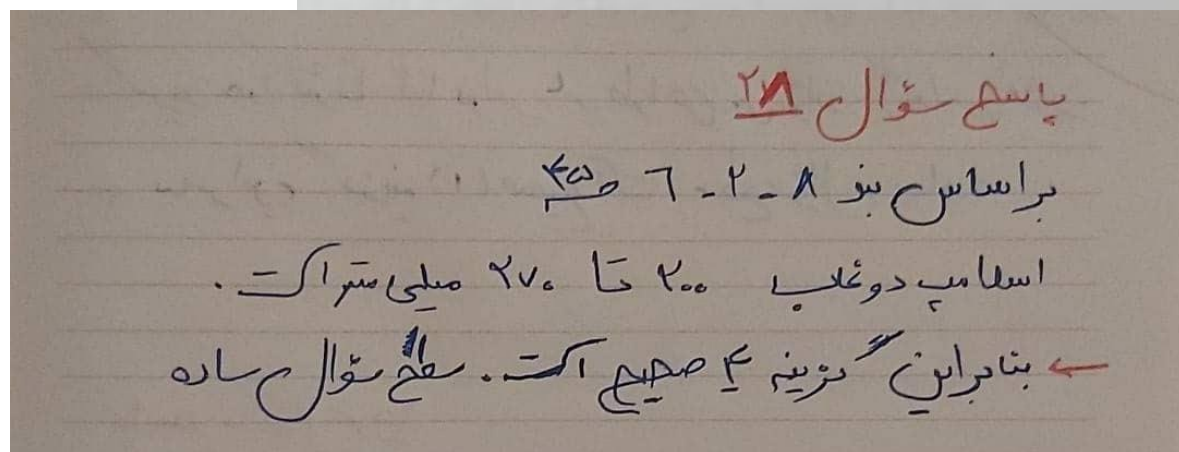 پاسخ سؤال ۲۸
براساس بند ۸-۲-۶ ص۴۵
اسلامپ دوغاب ۲۰۰ تا ۲۷۰ میلی متر است.
← بنابراین گزینه ۴ صحیح است. سطح سؤال ساده